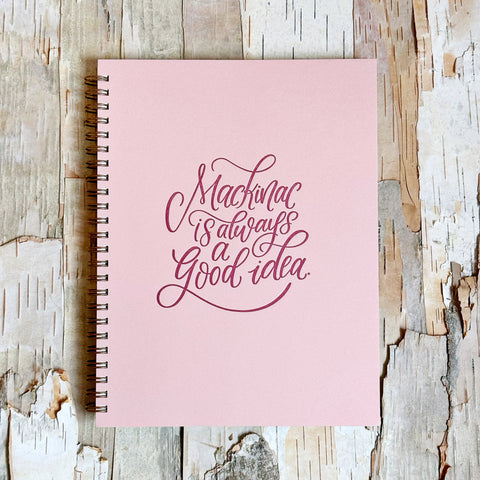 Mackinac
is always
a
Good idea.